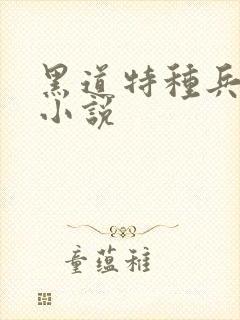 黑道特種兵
小說
童蘊稚